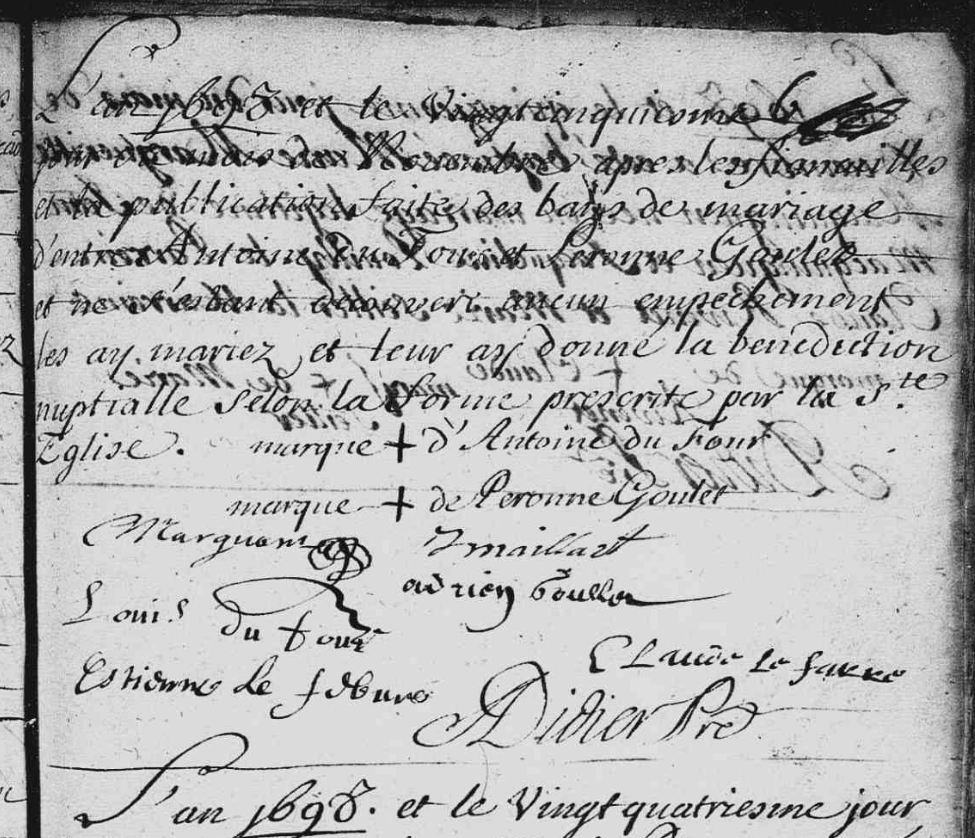 L'an 1698 et le Vingt cinquiesme
jour du mois de Novembre apres les fiancailles
et la publication faite des bans de mariage
d'entre Antoine du Four et Peronne Goulet
et ne s'estant decouvert aucun empechement
les ay mariez et leur ay donné la benediction
nuptialle selon la forme prescrite par la Ste
Eglise. marque + d'Antoine du Four
marque + de Peronne Goulet
Maillart
adrien Goullet
Louis du four
Claude le farre
Estienne le febure
Didier Pre
L'an 1698. et le Vingt quatriesme jour